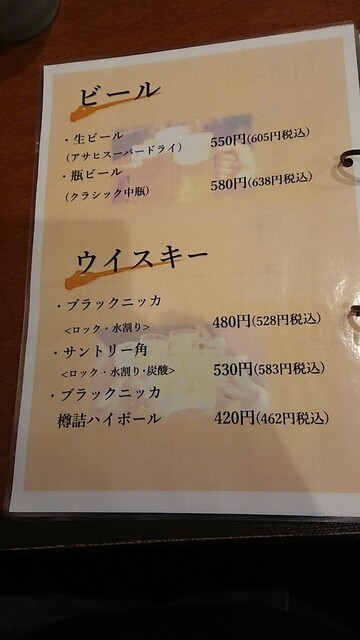 ビール
・生ビール
(アサヒスーパードライ) 550円(605円税込)
・瓶ビール
(クラシック中瓶) 580円(638円税込)
ウイスキー
・ブラックニッカ
<ロック・水割り> 480円(528円税込)
・サントリー角
<ロック・水割り・炭酸> 530円(583円税込)
・ブラックニッカ
樽詰ハイボール 420円(462円税込)